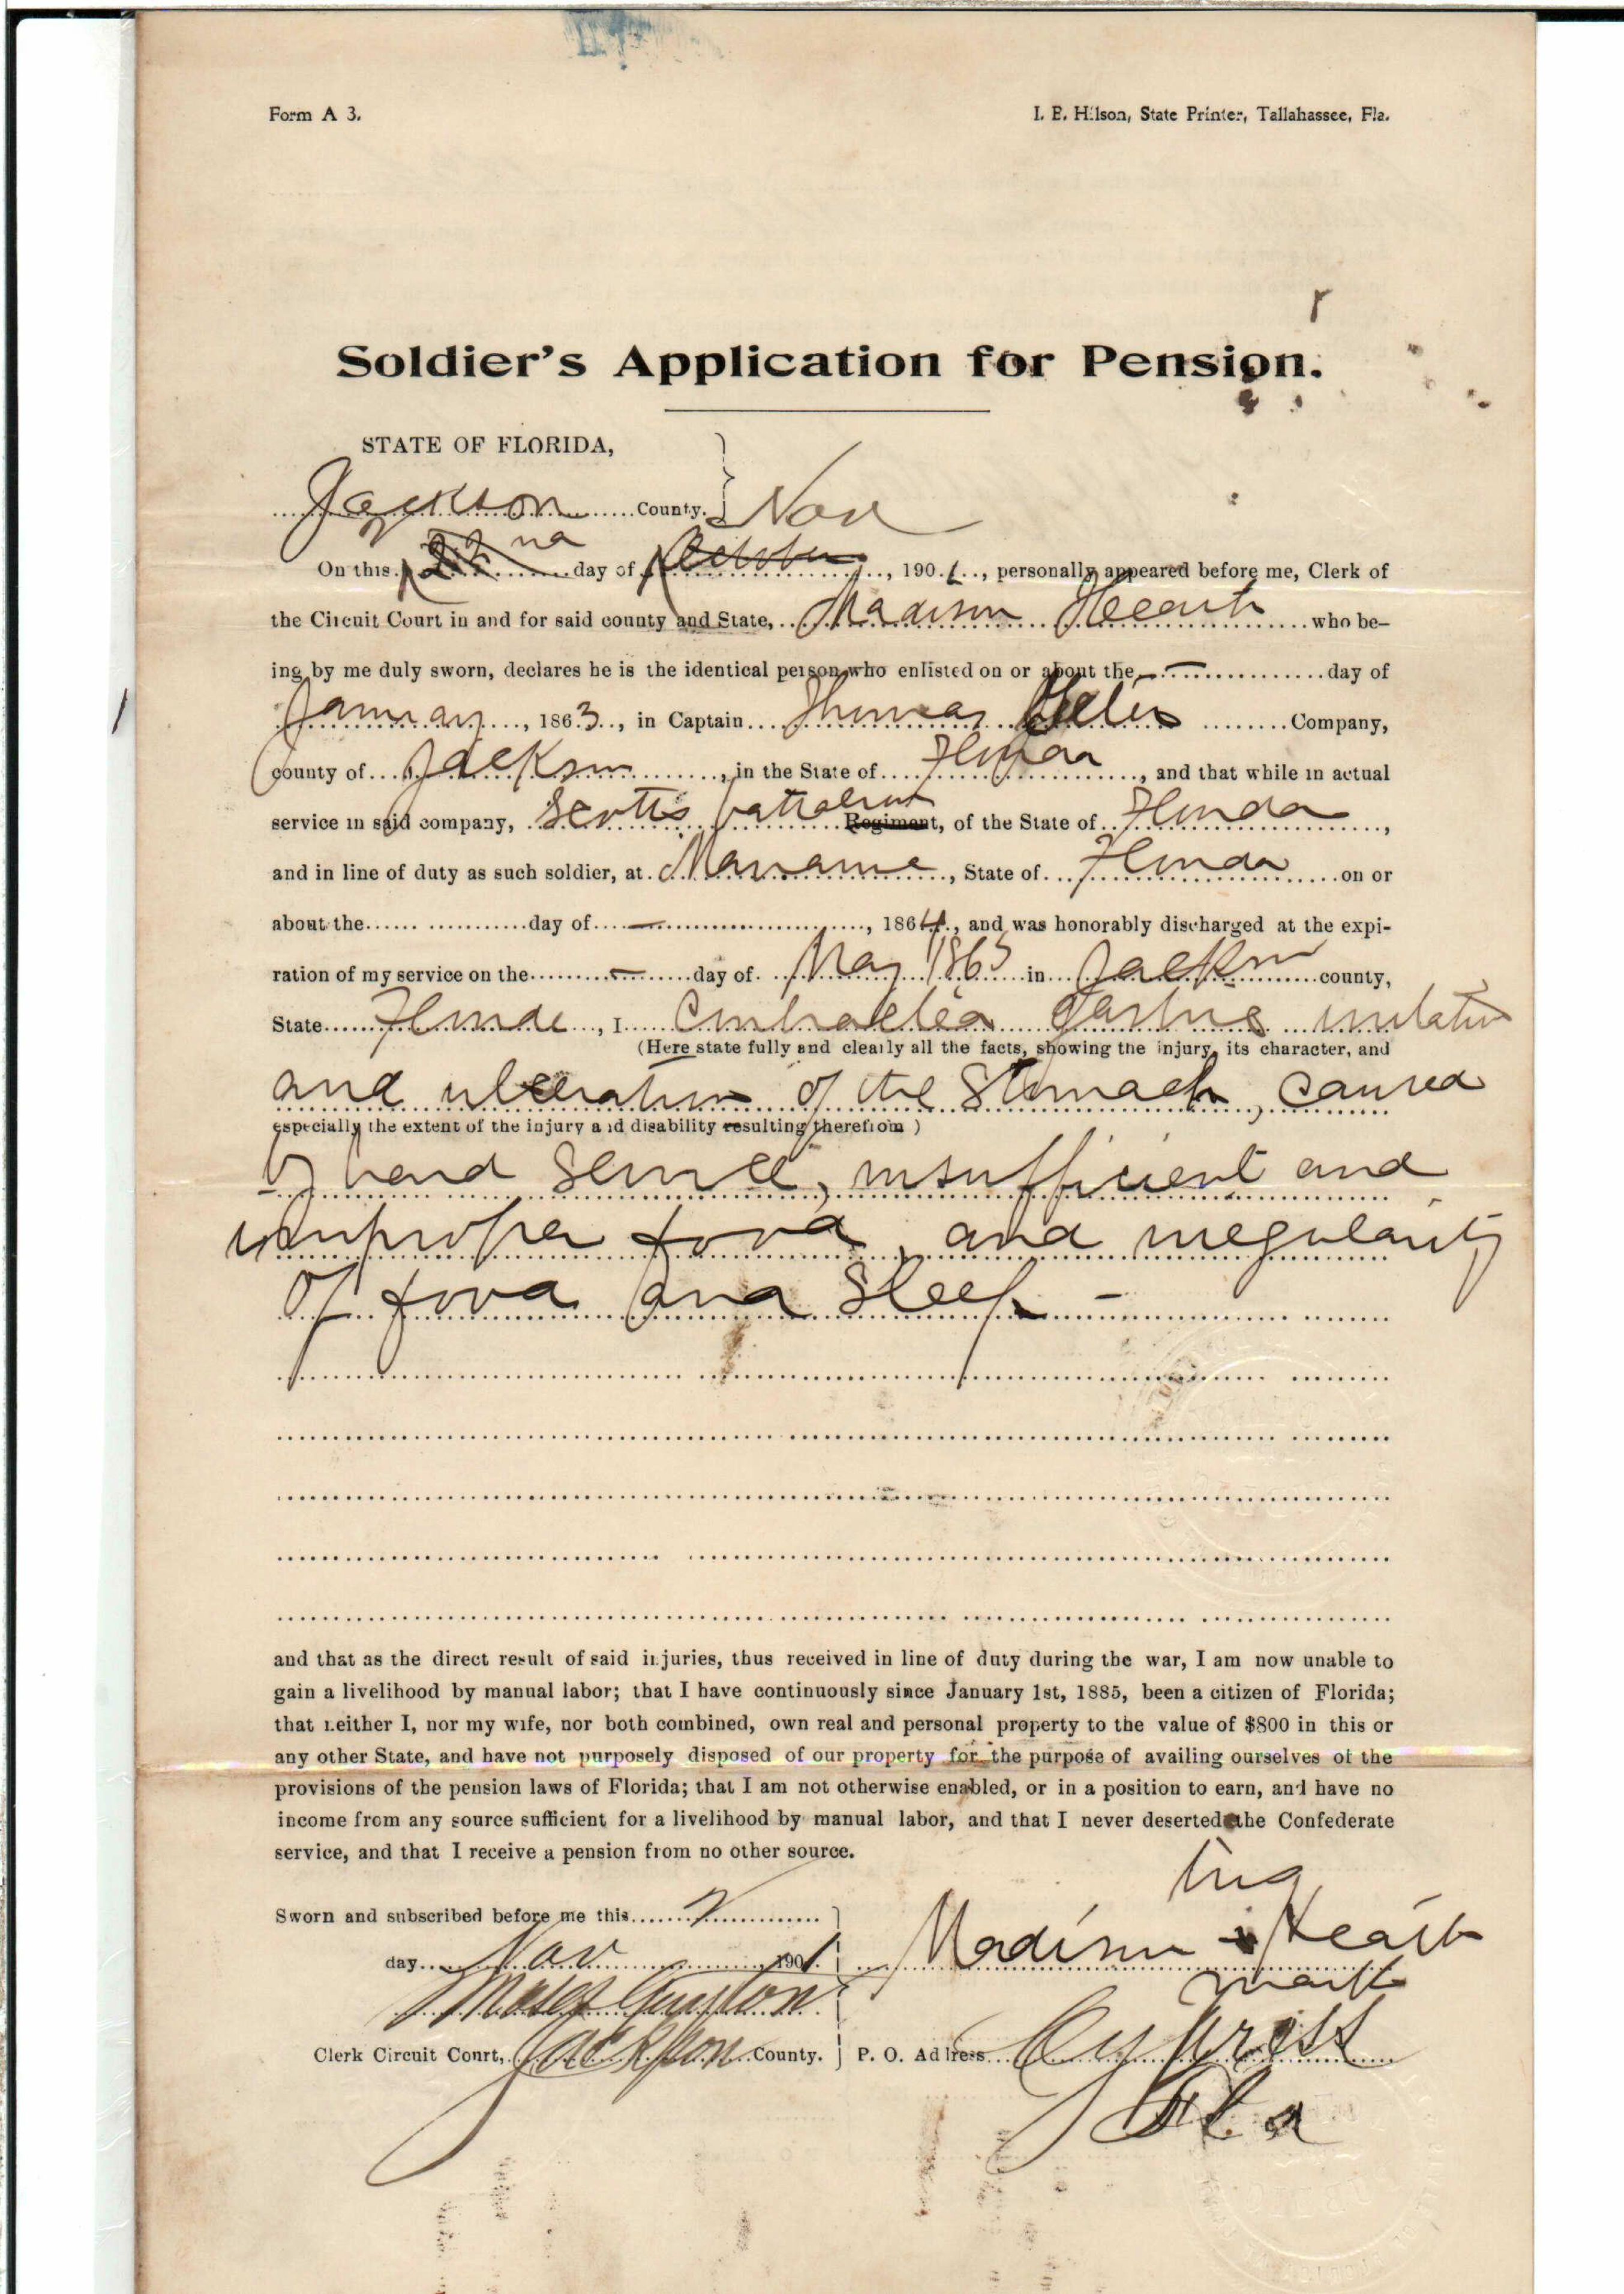 Form A 3.
I. B. Hilson, State Printer, Tallahassee, Fla.
Soldier's Application for Pension.
STATE OF FLORIDA,
Jackson County.
Nov
On this 2 nd day of October, 1901, personally appeared before me, Clerk of
the Circuit Court in and for said county and State, Madison Heath who be-
ing by me duly sworn, declares he is the identical person who enlisted on or about the — day of
January, 1863, in Captain Thomas Company,
county of Jackson, in the State of Florida, and that while in actual
service in said company, Scotts battalion Regiment, of the State of Florida,
and in line of duty as such soldier, at Marianna, State of Florida on or
about the day of —, 1864, and was honorably discharged at the expi-
ration of my service on the — day of May 1865 in Jackson county,
State Florida, I contracted gastric irritation
(Here state fully and clearly all the facts, showing the injury, its character, and
and ulceration of the Stomach, caused
especially the extent of the injury and disability resulting therefrom)
by hard service, insufficient and
improper food, and irregularity
of food and sleep -
and that as the direct result of said injuries, thus received in line of duty during the war, I am now unable to
gain a livelihood by manual labor; that I have continuously since January 1st, 1885, been a citizen of Florida;
that neither I, nor my wife, nor both combined, own real and personal property to the value of $800 in this or
any other State, and have not purposely disposed of our property for the purpose of availing ourselves of the
provisions of the pension laws of Florida; that I am not otherwise enabled, or in a position to earn, and have no
income from any source sufficient for a livelihood by manual labor, and that I never deserted the Confederate
service, and that I receive a pension from no other source.
his
Sworn and subscribed before me this 2
day Nov 1901
Madison x Heath
mark
Moses Guyton
Clerk Circuit Court, Jackson County.
P. O. Address Cypress
Fla